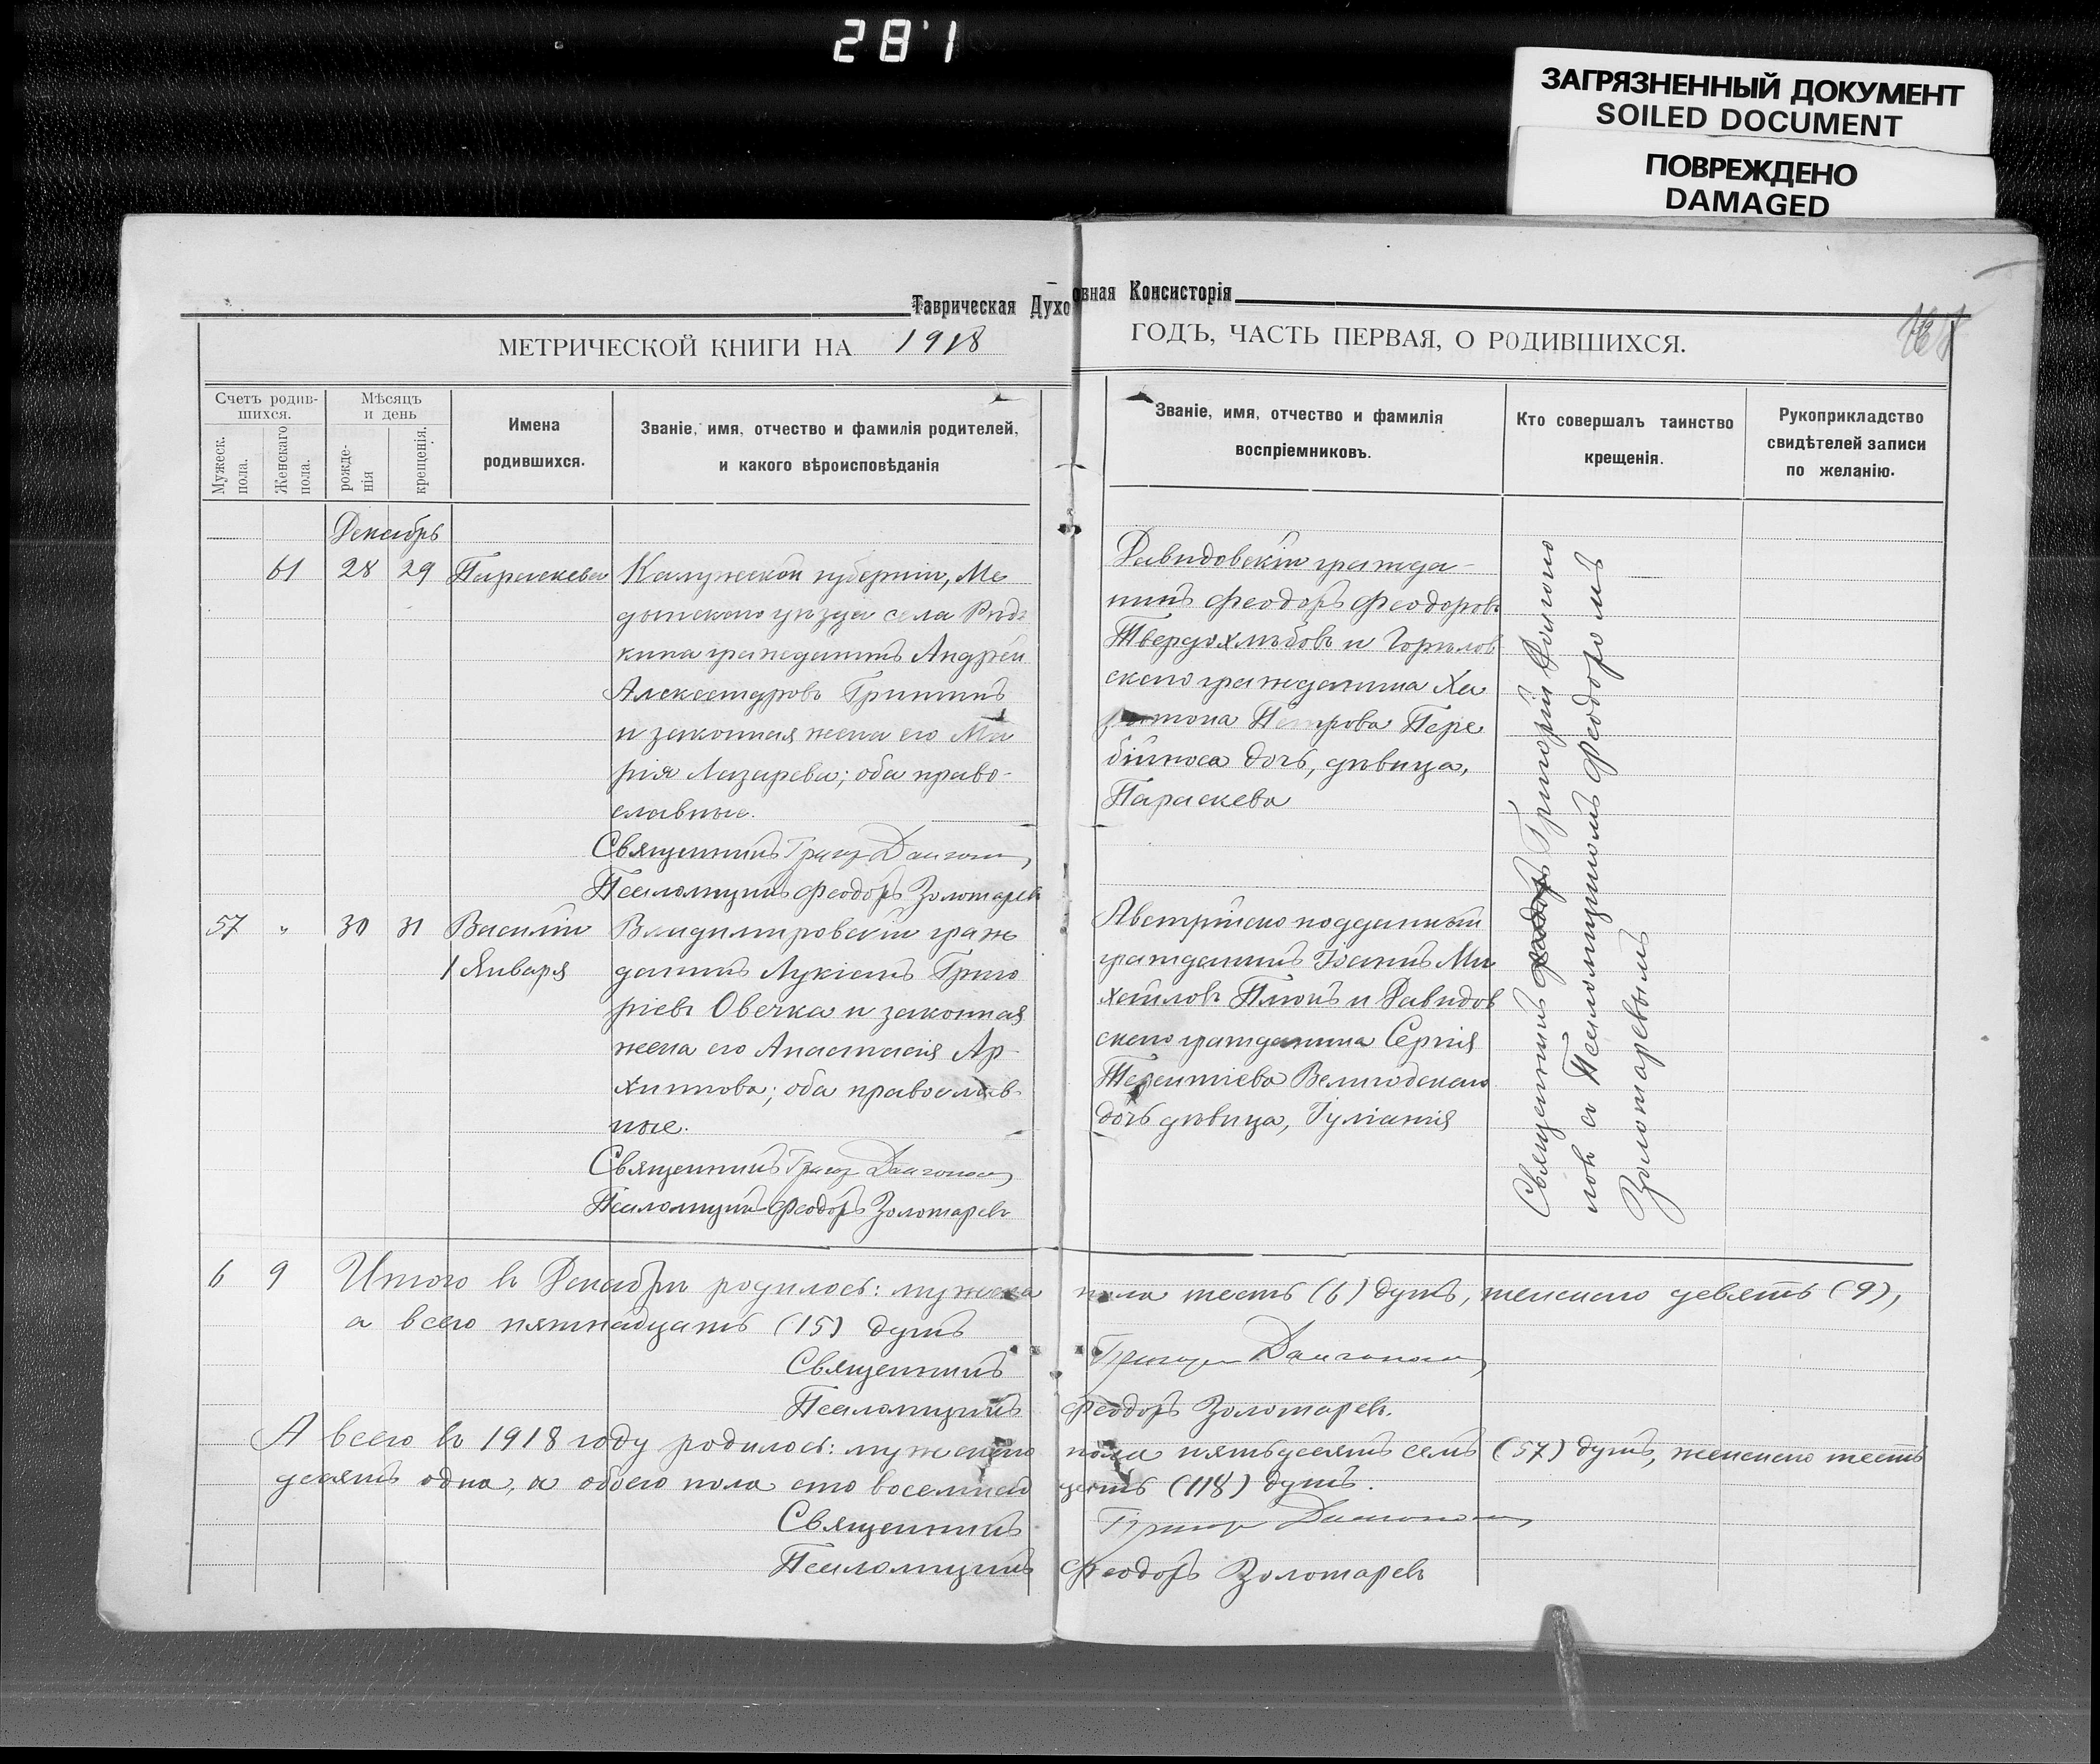 281
ЗАГРЯЗНЕННЫЙ ДОКУМЕНТ
SOILED DOCUMENT
ПОВРЕЖДЕНО
DAMAGED
Таврическая Духовная Консисторія
МЕТРИЧЕСКОЙ КНИГИ НА 1918 ГОДЪ, ЧАСТЬ ПЕРВАЯ, О РОДИВШИХСЯ.
Счетъ родив-
шихся.
Мужеск.
пола.
Женскаго
пола.
Мѣсяцъ
и день
рожде-
нія
крещенія.
Имена
родившихся.
Званіе, имя, отчество и фамилія родителей,
и какого вѣроисповѣданія
Званіе, имя, отчество и фамилія
воспріемниковъ.
Кто совершалъ таинство
крещенія.
Рукоприкладство
свидѣтелей записи
по желанію.
Декабрь
61 28 29 Параскева
Калужской губерніи, Ме
дынскаго уѣзда села
кина гражданинъ Андрей
Александровъ Гришинъ
и законная жена его Ма
рія Лазарева; оба право-
славные.
Священникъ Григор
Псаломщикъ Феодоръ Золотаревъ
Давидовскій гражда-
нинъ Феодоръ Феодоровъ
Твердохлѣбовъ и Горѣлов
скаго гражданина Ха
ритона Петрова Пере
бійноса дочь, дѣвица,
Параскева
57 " 30 31 Василій
1 Января
Владимировскій граж
данинъ Лукіанъ Григо
ріевъ Овечка и законная
жена его Анастасія Ар
хипова; оба православ-
ные.
Священникъ Григор
Псаломщикъ Феодоръ Золотаревъ
Австрійско подданный
гражданинъ Іоаннъ Ми
хайловъ и Давидов
скаго гражданина Сергія
Терентіева
дочь дѣвица, Іуліанія
Священникъ Григорій
съ Псаломщикомъ Феодоромъ
Золотаревымъ
6 9 Итого въ Декабрѣ родилось: мужска пола шесть (6) душъ, женскаго девять (9),
а всего пятнадцать (15) душъ
Священникъ
Псаломщикъ Феодоръ Золотаревъ.
А всего въ 1918 году родилось: мужскаго пола пятьдесятъ семь (57) душъ, женскаго шесть
десятъ одна, а обоего пола сто восемнад цать (118) душъ.
Священникъ
Псаломщикъ Феодоръ Золотаревъ